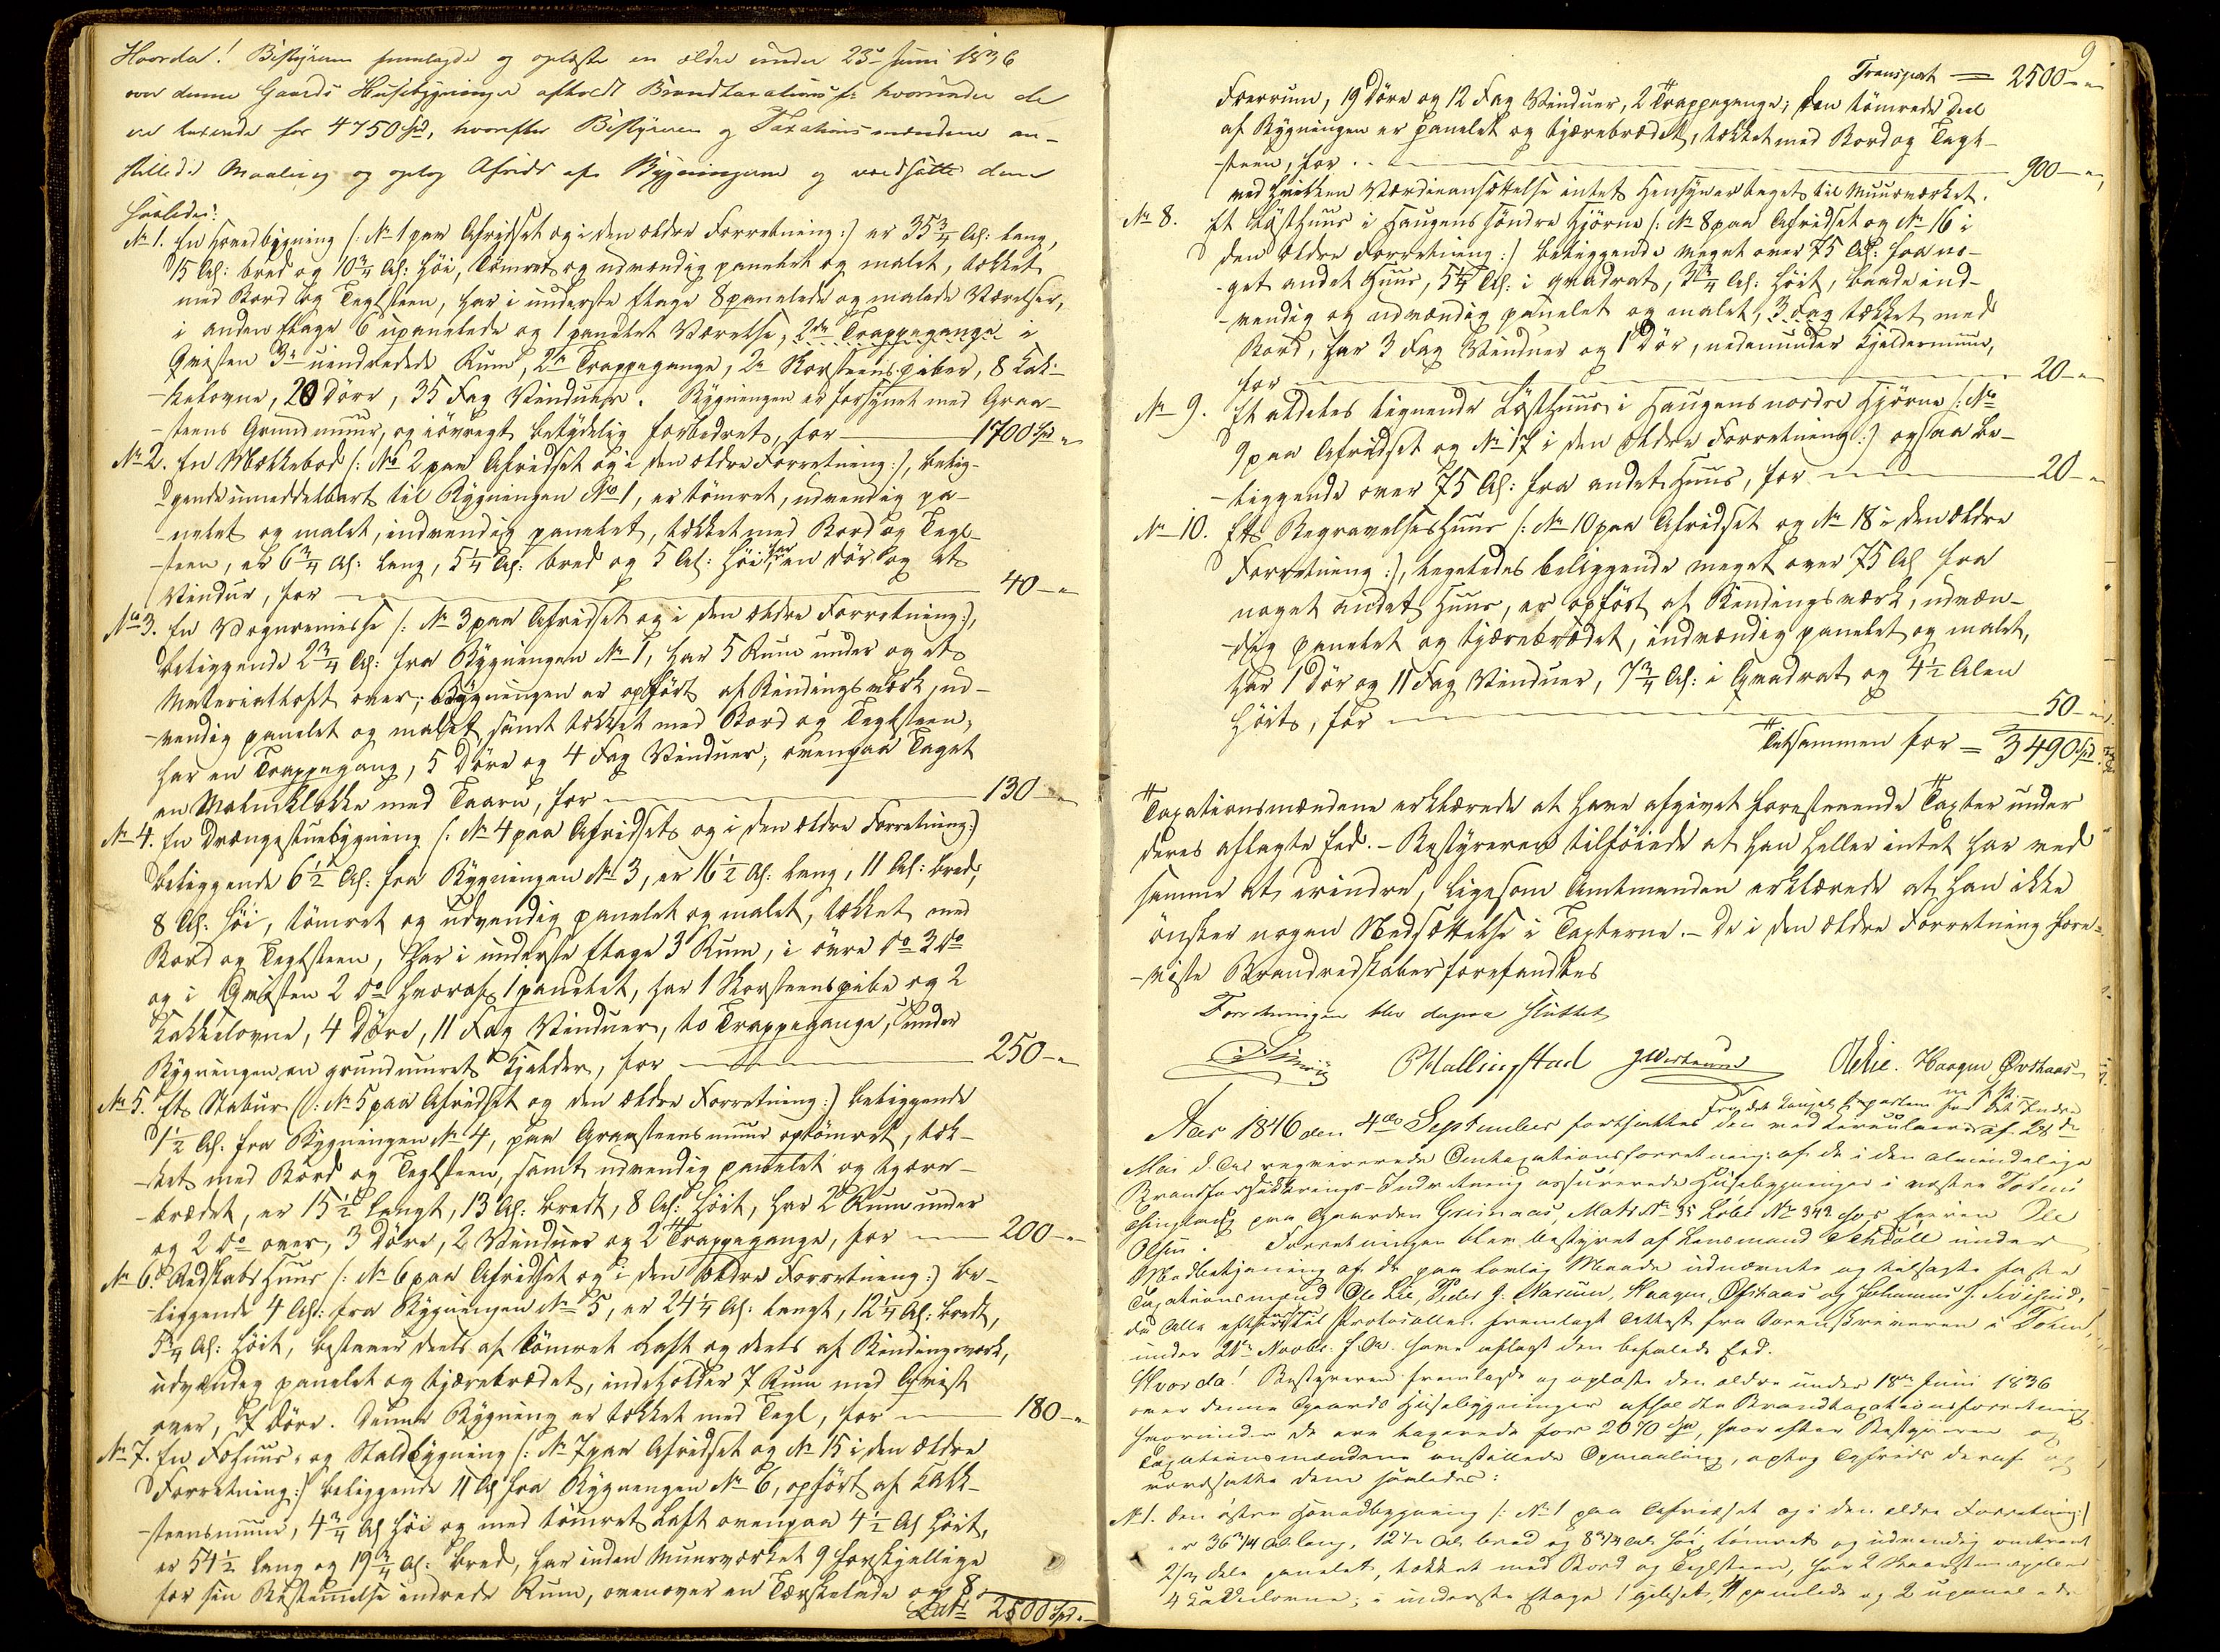 Hvorda! Bestyreren fremlagde og oplæste en ældre under 23de Juni 1836
over denne Gaards Husebygninger afholdt Brandtaxationsf: hvorunder de
ere taxerede for 4750 Spd, hvorefter Bestyreren og Taxationsmændene an-
stillede Maaling og optog Afrids af Bygningerne og værdsatte dem
saaledes:
No 1. En Hovedbygning (: No 1 paa Afridset og i den ældre Forretning :) er 35 3/4 Al: lang,
15 Al: bred og 10 3/4 Al: høi, tømret og udvendig panelet og malet, tækket
med Bord og Teglsteen, har i underste Etage 8 panelede og malede Værelser,
i anden Etage 6 upanelede og 1 panelet Værelse, 2de Trappegange i
Qvisten 3de uindredede Rum, 2de Trappegange, 2de Skorsteenspiber, 8 Kak-
kelovne, 20 Døre, 35 Fag Vinduer. Bygningen er forsynet med Graa-
steens Grundmuur, og iøvrigt betydelig forbedret, for 1700 Spd "
No 2. En Melkebod (: No 2 paa Afridset og i den ældre Forretning :), belig-
gende umeddelbart til Bygningen No 1, er tømret, udvendig pa-
nelet og malet, indvendig panelet, tækket med Bord og Tegl-
steen, er 6 3/4 Al: lang, 5 1/4 Al: bred og 5 Al: høi, har en Dør og et
Vindue, for 40 - "
No 3. En Vognremisse (: No 3 paa Afridset og i den ældre Forretning :),
beliggende 2 3/4 Al: fra Bygningen No 1, har 5 Rum under og et
Materialloft over; Bygningen er opført af Bindingsværk, ud-
vendig panelet og malet samt tækket med Bord og Teglsteen,
har en Trappegang, 5 Døre og 4 Fag Vinduer, ovenpaa Taget
en Malmklokke med Taarn, for 130 - "
No 4. En Drængestuebygning (: No 4 paa Afridset og i den ældre Forretning :)
beliggende 6 1/2 Al: fra Bygningen No 3, er 16 1/2 Al: lang, 11 Al: bred,
8 Al: høi, tømret og udvendig panelet og malet, tækket med
Bord og Teglsteen, har i underste Etage 3 Rum, i øvre do 3 do
og i Qvisten 2 do hvoraf 1 panelet, har 1 Skorsteenspibe og 2
Kakkelovne, 4 Døre, 11 Fag Vinduer, to Trappegange, under
Bygningen en grundmuret Kjelder, for 250 - "
No 5. Et Stabur (: No 5 paa Afridset og den ældre Forretning :) beliggende
1 1/2 Al. fra Bygningen No 4, paa Graasteensmuur optømret, tæk-
ket med Bord og Teglsteen, samt udvendig panelet og tjære-
brædet, er 15 1/2 langt, 13 Al: bredt, 8 Al: høit, har 2 Rum under
og 2 do over, 3 Døre, 2 Vinduer og 2 Trappegange, for 200 - "
No 6. Redskabshuus (: No 6 paa Afridset og i den ældre Forretning :) be-
liggende 4 Al: fra Bygningen No 5, er 24 1/4 Al: langt, 12 1/4 Al: bredt,
5 3/4 Al: høit, bestaaer deels af tømret Laft og deels af Bindingsværk,
udvendig panelet og tjærebrædet, indeholder 7 Rum med Qvist
over, 7 Døre. Denne Bygning er tækket med Tegl, for 180 - "
No 7. En Fæhuus- og Staldbygning (: No 7 paa Afridset og No 15 i den ældre
Forretning :) beliggende 11 Al fra Bygningen No 6, opført af Kalk-
steensmuur, 4 3/4 Al høi og med tømret Laft ovenpaa 4 1/2 Al høit,
er 54 1/2 lang og 19 3/4 Al: bred, har inden Muurværket 9 forskjellige
for sin Bestemmelse indrede Rum, ovenover en Tærskelade og 8
Lat. 2500 Spd "
9
Transport = 2500 - "
Foerrum, 19 Døre og 12 Fag Vinduer, 2 Trappegange; den tømrede Deel
af Bygningen er panelet og tjærebrædet, tækket med Bord og Tegl-
steen, for 900 - "
ved hvilken Værdieansættelse intet Hensyn er taget til Muurværket.
No 8. Et Lysthuus i Haugens søndre Hjørne (: No 8 paa Afridset og No 16 i
den ældre Forretning :) beliggende meget over 75 Al: fra no-
get andet Huus, 5 1/4 Al: i Qvadrat, 3 3/4 Al: høit, baade ind-
vendig og udvendig panelet og malet, 3 Fag tækket med
Bord, har 3 Fag Vinduer og 1 Dør, nedenunder Kjeldermuur,
for 20 - "
No 9. Et aldeles lignende Lysthuus i Haugens nordre Hjørne (: No
9 paa Afridset og No 17 i den ældre Forretning :) ogsaa be-
liggende over 75 Al: fra andet Huus, for 20 - "
No 10. Et Begravelseshuus (: No 10 paa Afridset og No 18 i den ældre
Forretning :), ligeledes beliggende meget over 75 Al fra
noget andet Huus, er opført af Bindingsværk, udven-
dig panelet og tjærebrædet, indvendig panelet og malet,
har 1 Dør og 11 Fag Vinduer, 7 3/4 Al: i Qvadrat og 4 1/2 Alen
høit, for 50 - "
Tilsammen for = 3490 Spd
Taxationsmændene erklærede at have afgivet forestaaende Taxter under
deres aflagte Eed. - Bestyreren tilføiede at han heller intet har ved
samme at erindre, ligesom Amtmanden erklærede at han ikke
ønsker nogen Nedsættelse i Taxterne. - De i den ældre Forretning fore-
viste Brandredskaber forefandtes
Forretningen blev dermed sluttet
PMallingstad OLie. Haagen Øvshaas
m. f. P.
Aar 1846 den 4de September fortsattes den ved Circulaire fra det Kongel. Departem for det Indre af 28de
Mai d. A. reqvirerede Omtaxationsforretning af de i den almindelige
Brandforsikkrings-Indretning assurerede Husebygninger i vestre Totens
Thinglaug paa Gaarden Griinaas, Matr No 35 Løbe No 343 hos Eieren Ole
Olsen. Forretningen blev bestyret af Lensmand Schdøll under
Medbetjening af de paa lovlig Maade udnævnte og tilsagte faste
Taxationsmænd Ole Lie, Peder J. Narum, Haagen Øfshaas og Johannes J. Sivesind,
da Alle efter Protocollen fremlagt Attest fra Sorenskriveren i Toten,
under 21de Novbr: f. A. have aflagt den befalede Eed.
Hvorda! Bestyreren fremlagde og oplæste den ældre under 18de Juni 1836
over denne Gaards Husebygninger afholdte Brandtaxationsforretning
hvorunder de ere taxerede for 2070 Spd, hvorefter Bestyreren og
Taxationsmændene anstillede Opmaaling, optog Afrids deraf og
værdsatte dem saaledes:
No 1. Den østre Hovedbygning (: No 1 paa Afridset og i den ældre Forretning :)
er 36 3/4 Al. lang, 12 1/2 Al. bred og 8 3/4 Al. høi, tømret og udvendig
2/3 dele panelet, tækket med Bord og Teglsteen, har 2 Skorsteenspiber
4 Kakkelovne; i underste Etage 1 gibset, 4 panelede og 2 upanelede